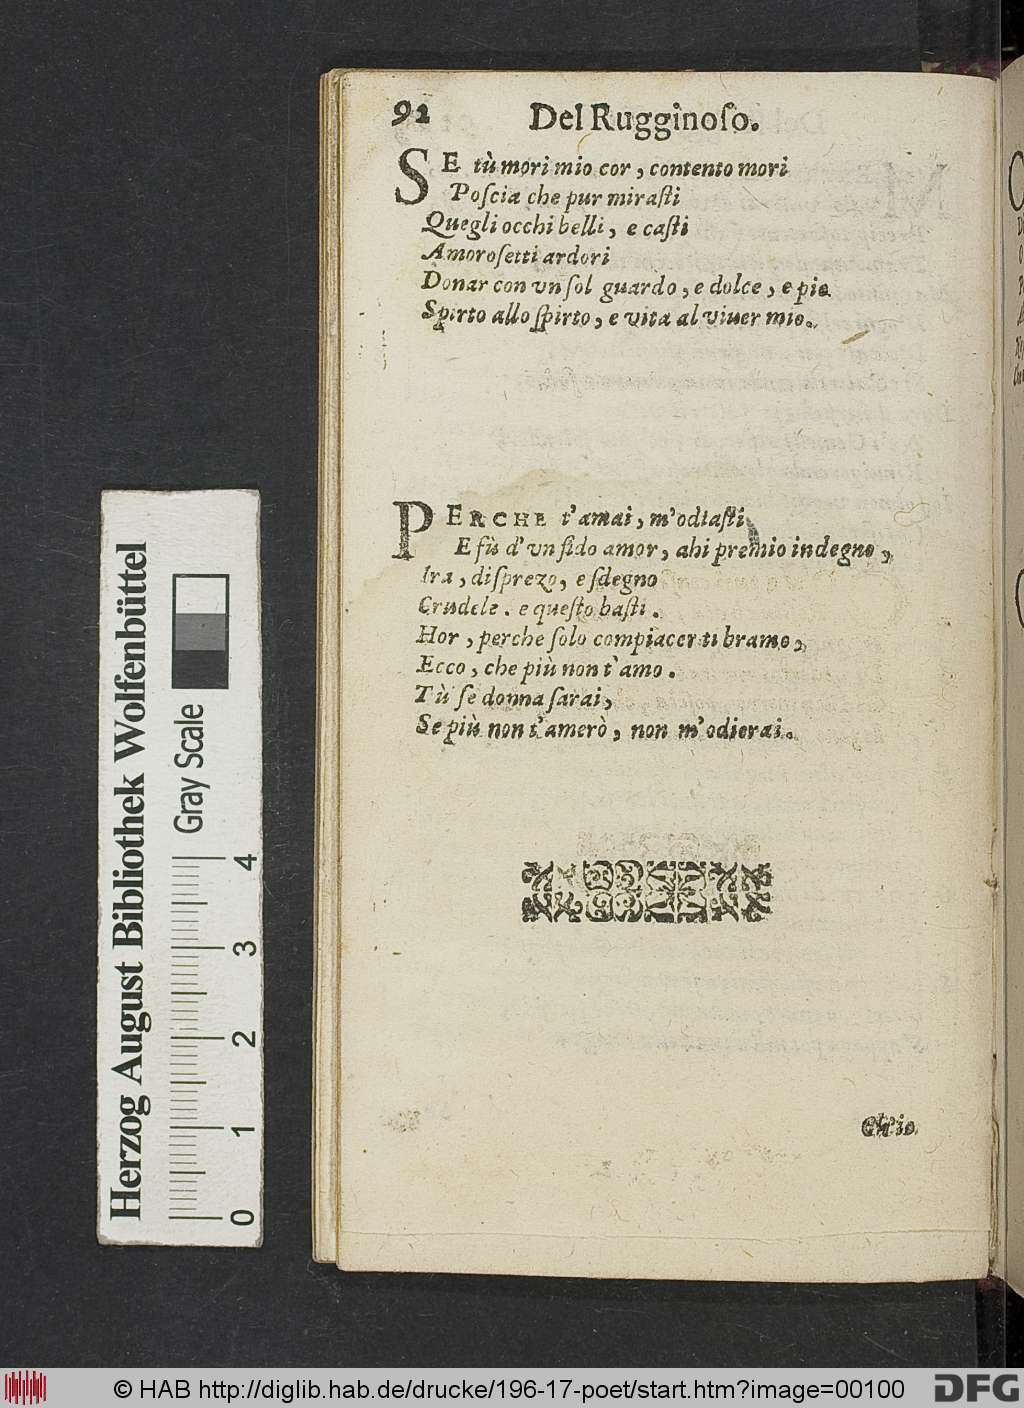 92 Del Rugginoſo.
SE tù mori mio cor, contento mori
Poſcia che pur miraſti
Quegli occhi belli, e caſti
Amoroſetti ardori
Donar con vn ſol guardo, e dolce, e pio
Spirto allo ſpirto, e vita al viuer mio.
PERCHE t'amai, m'odiaſti
E fù d'vn fido amor, ahi premio indegno,
Ira, diſprezo, e ſdegno
Crudele. e queſto baſti.
Hor, perche ſolo compiacer ti bramo,
Ecco, che più non t'amo.
Tù ſe donna ſarai,
Se più non t'amerò, non m'odierai.
Ch'io
Herzog August Bibliothek Wolfenbüttel
Gray Scale
0 1 2 3 4
© HAB http://diglib.hab.de/drucke/196-17-poet/start.htm?image=00100
DFG